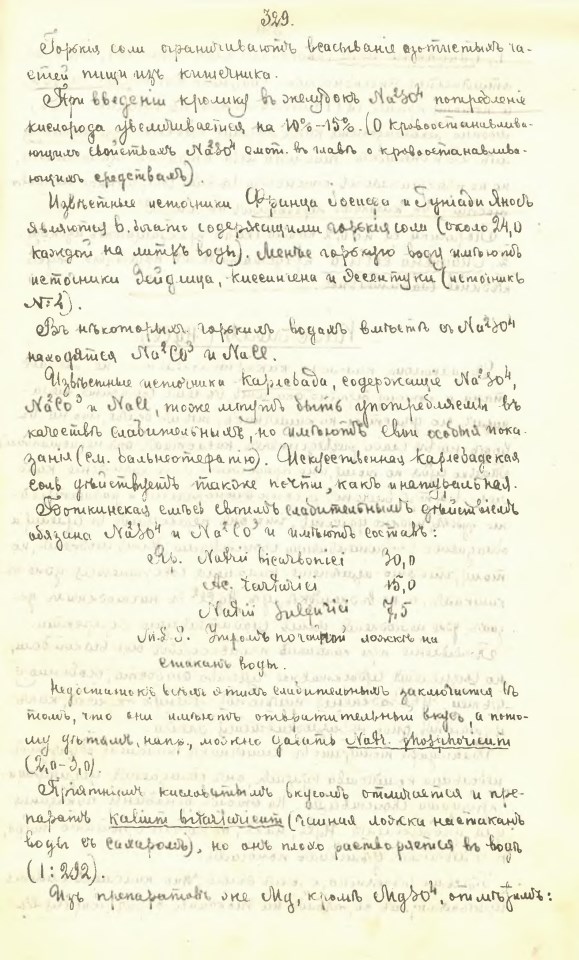 329.
Горькiя соли ограничиваютъ всасыванiе азотистыхъ ча-
стей пищи изъ кишечника.
При введенiи кролику въ желудокъ Na²SO⁴ потребленiе
кислорода увеличивается на 10%–15%. (О кровоостанавлива-
ющихъ свойствахъ Na²SO⁴ смот. въ главѣ о кровоостанавлива-
ющихъ средствахъ).
Извѣстные источники Франца Iосифа и Гунiади Яносъ
являются в. богато содержащими горькiя соли (около 24,0
каждой на литръ воды). Менѣе горькую воду имѣютъ
источники Зейдлица, Киссингена и Эссентуки (источникъ
№ 4).
Въ нѣкоторыхъ горькихъ водахъ вмѣстѣ съ Na²SO⁴
находятся Na²CO³ и NaCl.
Извѣстные источники Карлсбада, содержащiе Na²SO⁴,
Na²CO³ и NaCl, тоже могутъ быть употребляемы въ
качествѣ слабительныхъ, но имѣютъ свои особыя пока-
занiя (см. бальнеотерапiю). Искуственная Карлсбадская
соль дѣйствуетъ также почти, какъ и натуральная.
Боткинская смѣсь своимъ слабительнымъ дѣйствiемъ
обязана Na²SO⁴ и Na²CO³ и имѣютъ составъ:
Rp. Natrii bicarbonici 30,0
Ac. tartarici 15,0
Natrii Sulfurici 7,5
M.D.S. Утромъ по чайной ложкѣ на
стаканъ воды.
Недостатокъ всѣхъ этихъ слабительныхъ заключается въ
томъ, что они имѣютъ отвратительный вкусъ, а пото-
му дѣтямъ, напр., можно давать Natr. phosphoricum
(2,0–3,0).
Прiятнымъ кисловатымъ вкусомъ отличается и пре-
паратъ Kalium bitartaricum (чайная ложка на стаканъ
воды съ сахаромъ), но онъ плохо растворяется въ водѣ
(1:292).
Изъ препаратовъ же Mg, кромѣ MgSO⁴, отмѣтимъ: